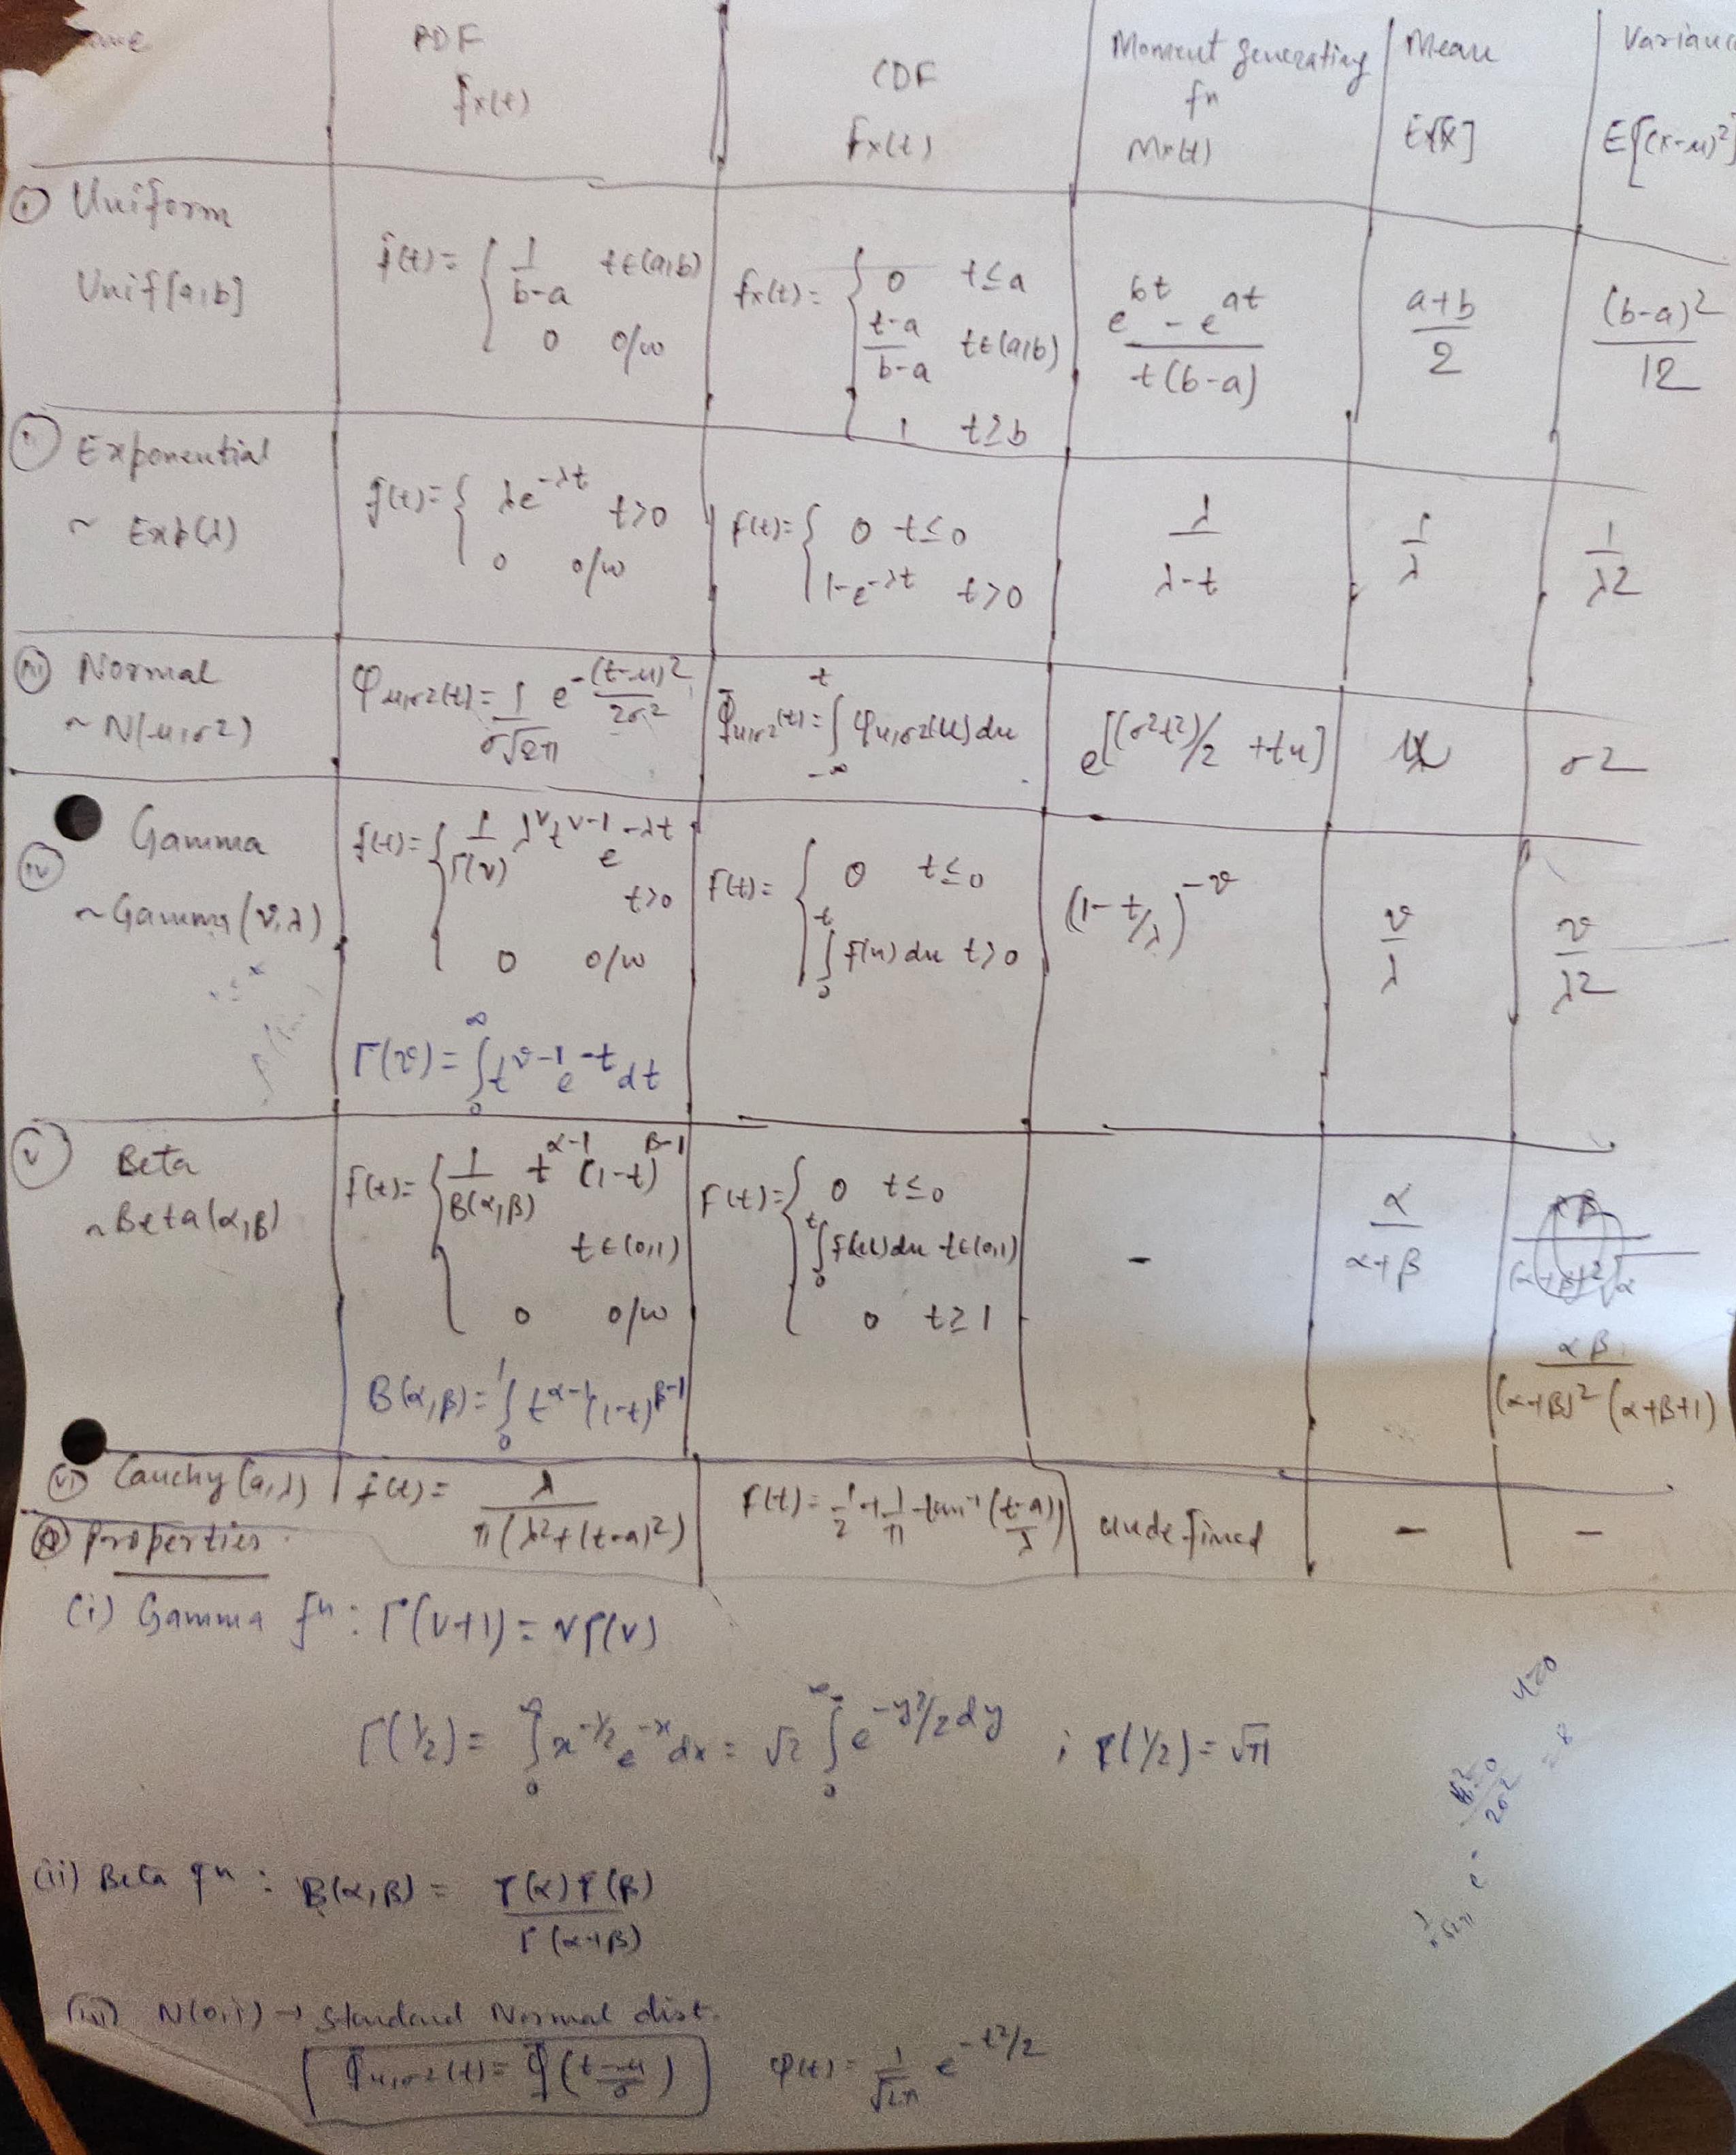 PDF
CDF
Moment generating
Mean
Varianc
fx(t)
Fx(t)
fn
Mx(t)
E[X]
E[(x-μ)²]
(i) Uniform
Unif[a,b]
f(t) = { 1/(b-a) t∈(a,b)
0 o/w
fx(t) = { 0 t≤a
(t-a)/(b-a) t∈(a,b)
1 t≥b
(e^bt - e^at)/(t(b-a))
(a+b)/2
(b-a)²/12
(ii) Exponential
~ Exp(λ)
f(t) = { λe^-λt t>0
0 o/w
F(t) = { 0 t≤0
1-e^-λt t>0
λ/(λ-t)
1/λ
1/λ2
(iii) Normal
~ N(μ,σ2)
φμ,σ2(t) = 1/(σ√2π) e^-(t-μ)²/2σ²
Φμ,σ2(t) = ∫_-∞^t φμ,σ2(u) du
e[(σ²t²)/2 + tμ]
μ
σ2
(iv) Gamma
~Gamma(ν,λ)
f(t) = { 1/Γ(ν) λ^ν t^ν-1 e^-λt
t>0
0 o/w
Γ(ν) = ∫_0^∞ t^ν-1 e^-t dt
F(t) = { 0 t≤0
∫_0^t f(u) du t>0
(1-t/λ)^-ν
ν/λ
ν/λ2
(v) Beta
~Beta(α,β)
f(t) = { 1/B(α,β) t^α-1 (1-t)^β-1
t∈(0,1)
0 o/w
B(α,β) = ∫_0^1 t^α-1 (1-t)^β-1
F(t) = { 0 t≤0
∫_0^t f(u) du t∈(0,1)
0 t≥1
-
α/(α+β)
αβ/((α+β)²(α+β+1))
(vi) Cauchy(a,λ)
f(t) = λ/(π(λ²+(t-a)²))
F(t) = 1/2 + 1/π tan⁻¹((t-a)/λ)
undefined
-
-
Properties
(i) Gamma fn: Γ(ν+1) = νΓ(ν)
Γ(1/2) = ∫_0^∞ x^-1/2 e^-x dx = √2 ∫_0^∞ e^-y²/2 dy ; Γ(1/2) = √π
(ii) Beta fn : B(α,β) = Γ(α)Γ(β)/Γ(α+β)
(iii) N(0,1) → Standard Normal dist.
Φμ,σ2(t) = Φ((t-μ)/σ)
φ(t) = 1/√2π e^-t²/2